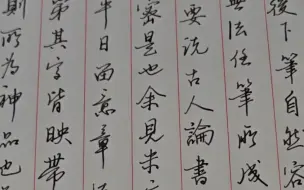 後下筆自然容
無法任筆所成
要訣古人論書
密是也余見米
平日留意章
第其字皆映帶
則所為神品也